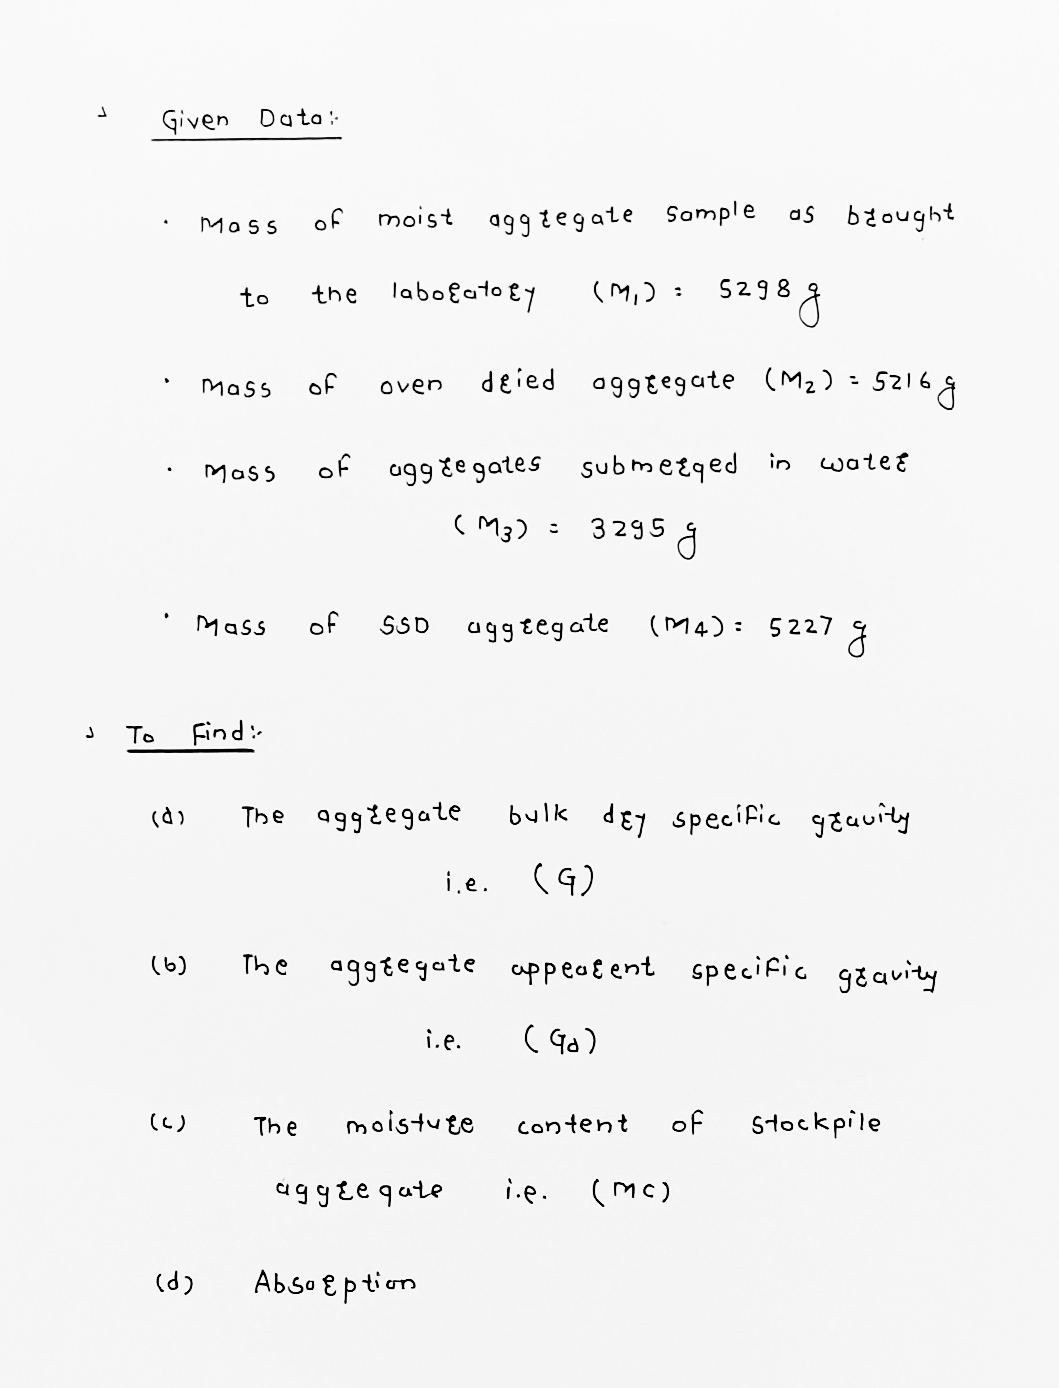 Given Data:-
• Mass of moist aggregate sample as brought
to the laboratory (M₁) = 5298 g
• Mass of oven dried aggregate (M₂) = 5216 g
• Mass of aggregates submerged in water
(M₃) = 3295 g
• Mass of SSD aggregate (M₄) = 5227 g
To Find:-
(a) The aggregate bulk dry specific gravity
i.e. (G)
(b) The aggregate appearent specific gravity
i.e. (Ga)
(c) The moisture content of stockpile
aggregate i.e. (MC)
(d) Absorption